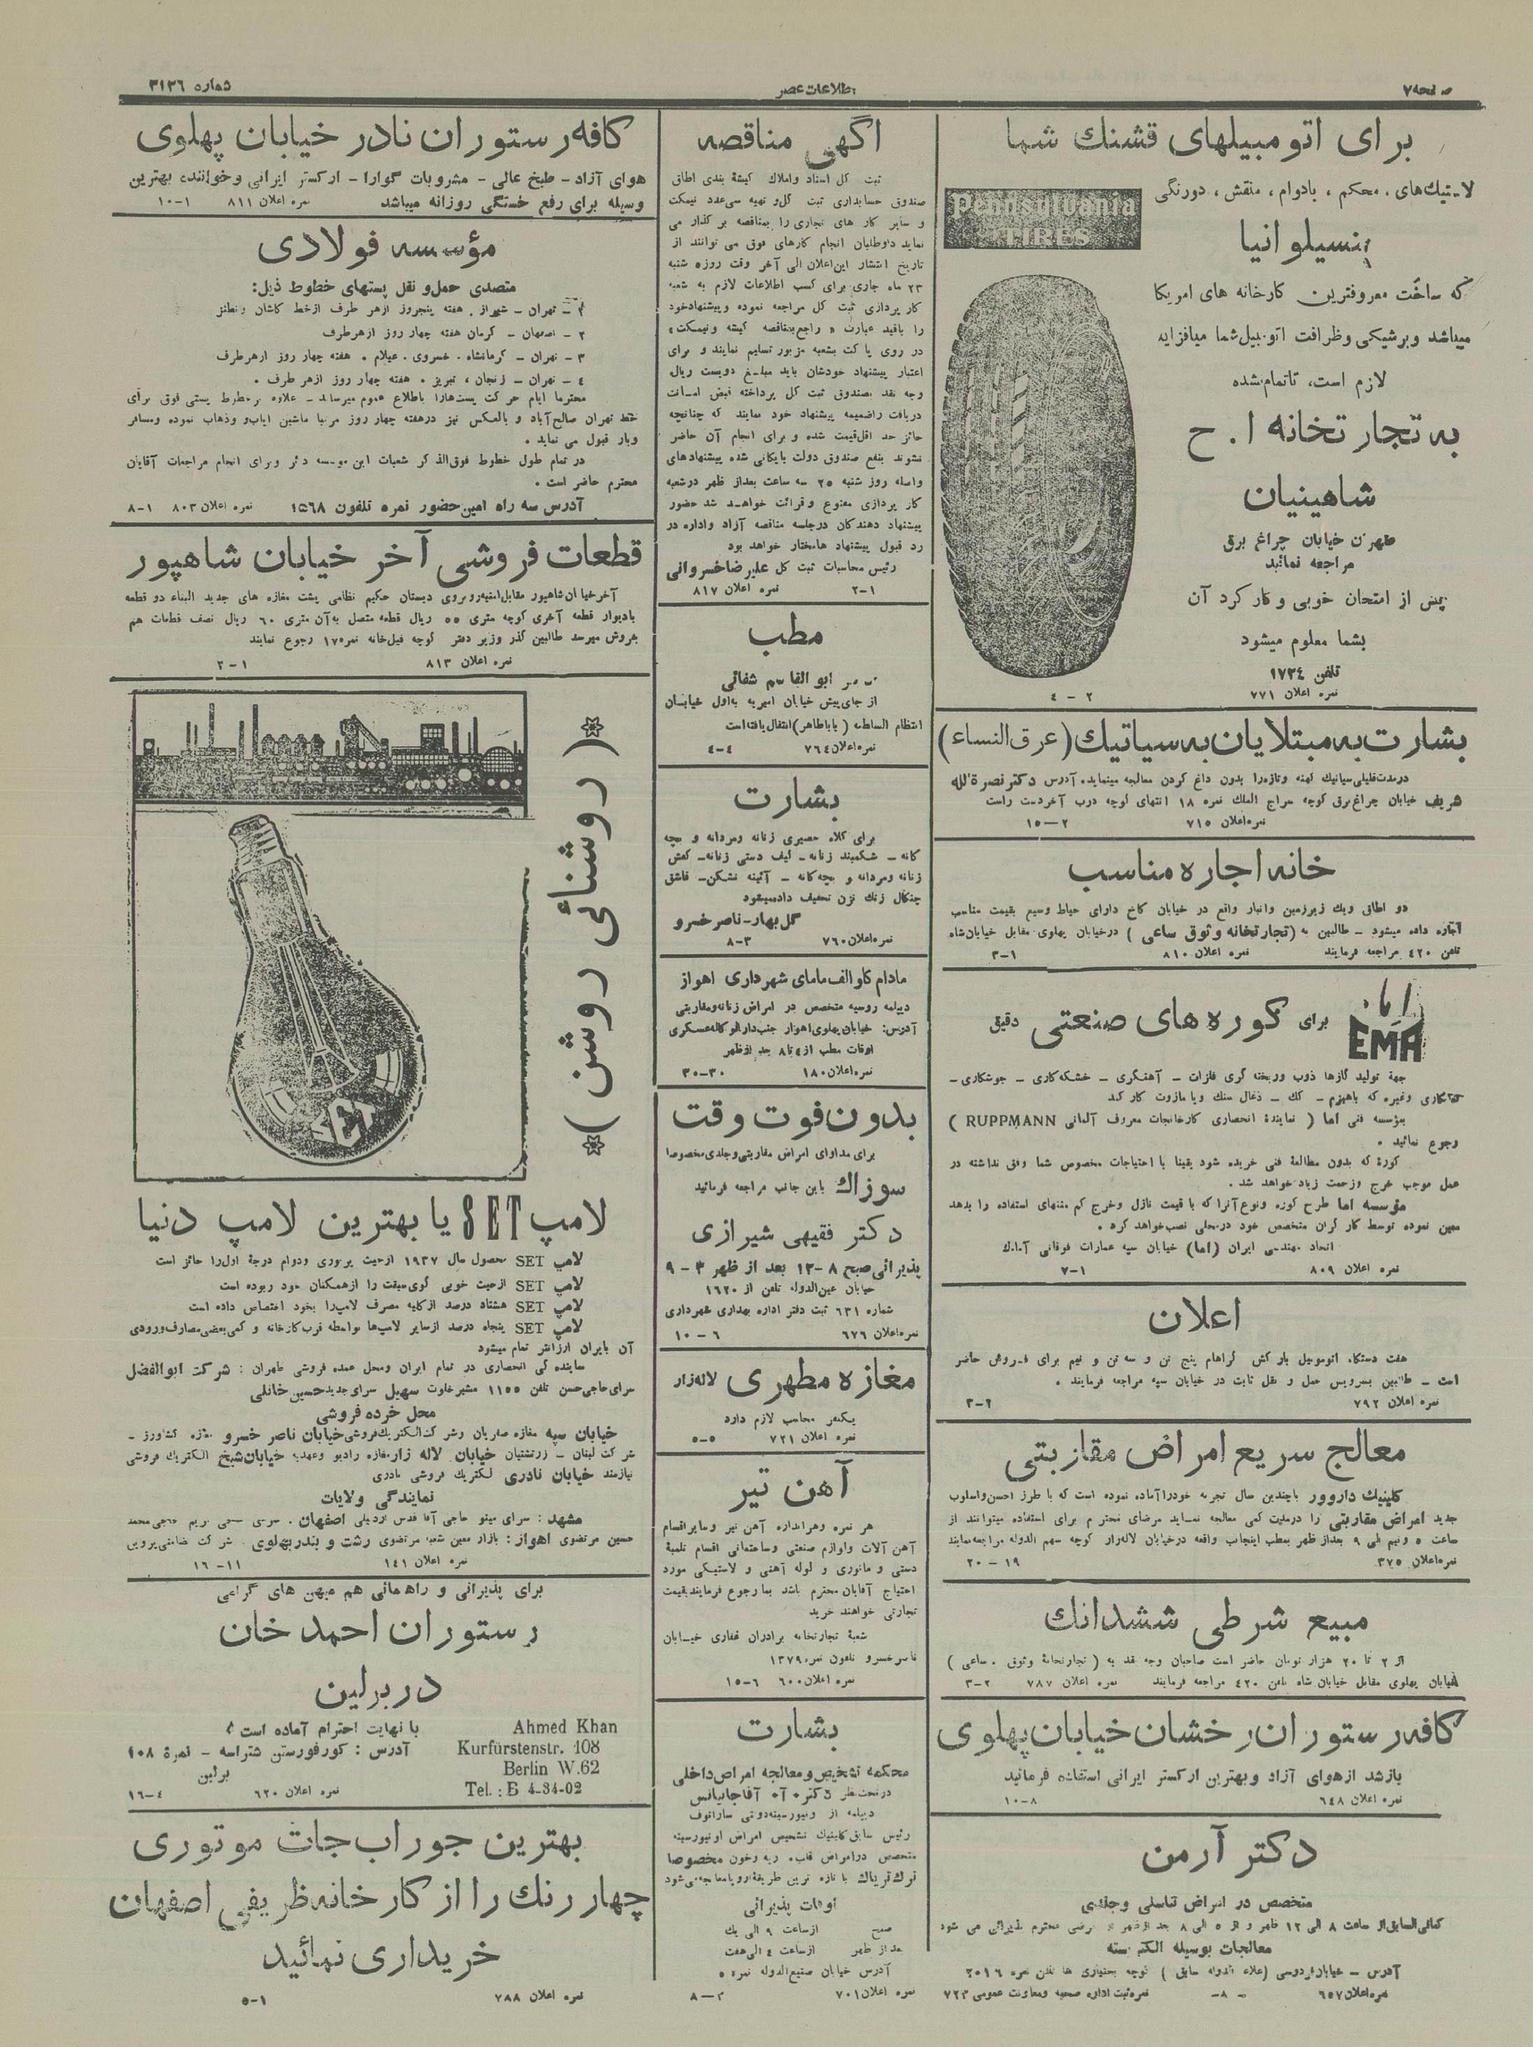 صفحه ۷
اطلاعات عصر
شماره ۳۱۳۶
برای اتومبیلهای قشنك شما
لاستیك‌های ، محکم ، بادوام ، منقش ، دورنگی
Pennsylvania
TIRES
پنسیلوانیا
که ساخت معروفترین کارخانه های امریکا
میباشد وبرشیکی وظرافت اتومبیل شما میافزاید
لازم است، تاتمام نشده
به تجارتخانه ا . ح
شاهینیان
طهران خیابان چراغ برق
مراجعه نمائید
پس از امتحان خوبی و کارکرد آن
بشما معلوم میشود
تلفن ۱۷۳٤
نمره اعلان ۷۷۱ ۲ - ٤
بشارت به مبتلایان به سیاتیك (عرق النساء)
درمدت قلیلی سیاتیك کهنه وتازه را بدون داغ کردن معالجه مینماید. آدرس دکتر نصرة الله
شریف خیابان چراغ برق کوچه سراج الملك نمره ۱۸ انتهای کوچه درب آخر دست راست
نمره اعلان ۷۱۵ ۲—۱۵
خانه اجاره مناسب
دو اطاق ویك زیرزمین وانبار واقع در خیابان کاخ دارای حیاط وسیع بقیمت مناسب
اجاره داده میشود - طالبین به (تجارتخانه وثوق ساعی) درخیابان پهلوی مقابل خیابان شاه
تلفن ٤۲۰ مراجعه فرمایند نمره اعلان ۸۱۰ ۱-۳
اما
EMA
برای کوره های صنعتی دقیق
جهة تولید گازها ذوب وریخته گری فلزات - آهنگری - خشکه کاری - جوشکاری -
وغیره که باهیزم - کك - ذغال سنك ویا مازوت کار کند
بمؤسسه فنی اما ( نمایندۀ انحصاری کارخانجات معروف آلمانی RUPPMANN )
رجوع نمائید .
کورۀ که بدون مطالعۀ فنی خریده شود یقینا با احتیاجات مخصوص شما وفق نداشته در
عمل موجب خرج وزحمت زیاد خواهد شد .
مؤسسه اما طرح کوره ونوع آنرا که با قیمت نازل وخرج کم منتهای استفاده را بدهد
معین نموده توسط کارگران متخصص خود درمحلی نصب خواهد کرد .
اتحاد مهندسی ایران (اما) خیابان سپه عمارات فوقانی
نمره اعلان ۸۰۹ ۱-۷
اعلان
هفت دستگاه اتومبیل بارکش گراهام پنج تن و سه تن و نیم برای فروش حاضر
است - طالبین بسرویس حمل و نقل ثابت در خیابان سپه مراجعه فرمایند .
نمره اعلان ۷۹۲ ۲-۳
معالج سریع امراض مقاربتی
کلینیك داروور باچندین سال تجربه خودرا آماده نموده است که با طرز احسن واسلوب
جدید امراض مقاربتی را درمدت کمی معالجه نماید مرضای محترم برای استفاده میتوانند از
ساعت ۵ ونیم الی ۹ بعدازظهر بمطب اینجانب واقعه درخیابان لاله‌زار کوچه سهم الدوله مراجعه نمایند
نمره اعلان ۳۷۵ ۱۹-۲۰
مبیع شرطی ششدانك
از ۲ تا ۲۰ هزار تومان حاضر است صاحبان وجه نقد به ( تجارتخانۀ وثوق . ساعی )
خیابان پهلوی مقابل خیابان شاه تلفن ٤۲۰ مراجعه فرمایند نمره اعلان ۷۸۷ ۲-۳
کافه رستوران رخشان خیابان پهلوی
بازشد ازهوای آزاد و بهترین ارکستر ایرانی استفاده فرمائید
نمره اعلان ٦٤۸ ۸-۱۰
دکتر آرمن
متخصص در امراض تناسلی وجلدی
کمافی‌السابق از ساعت ۸ الی ۱۲ ظهر و از ۵ الی ۸ بعد ازظهر مرضی محترم پذیرائی می شود
معالجات بوسیله الکتریسته
آدرس - خیابان فردوسی (علاء الدوله سابق) کوچه بختیاری ها تلفن نمره ۲۰۱٦
نمره اعلان ٦۵۷ ۸- نمره ثبت اداره صحیه ومعاونت عمومی ۷۲۳
آگهی مناقصه
ثبت کل اسناد واملاك کیشۀ بندی اطاق
صندوق حسابداری ثبت کل و تهیه سی عدد نیمکت
و سایر کار های نجاری را بمناقصه برگذار می
نماید داوطلبان انجام کارهای فوق می توانند از
تاریخ انتشار این اعلان الی آخر وقت روزه شنبه
۲۳ ماه جاری برای کسب اطلاعات لازم به شعبه
کارپردازی ثبت کل مراجعه نموده وپیشنهاد خود
را باقید عبارت « راجع بمناقصه کیشه و نیمکت»
در روی پاکت بشعبه مزبور تسلیم نمایند و برای
اعتبار پیشنهاد خودشان باید مبلغ دویست ریال
وجه نقد بصندوق ثبت کل پرداخته قبض امانت
دریافت راضمیمه پیشنهاد خود نمایند که چنانچه
حائز حد اقل قیمت شده و برای انجام آن حاضر
نشوند بنفع صندوق دولت بایگانی شده پیشنهادهای
واصله روز شنبه ۲۵ سه ساعت بعداز ظهر درشعبه
کار پردازی مفتوع وقرائت خواهد شد حضور
پیشنهاد دهندگان درجلسه مناقصه آزاد واداره در
رد قبول پیشنهاد هامختار خواهد بود
رئیس محاسبات ثبت کل علیرضا خسروانی
نمره اعلان ۸۱۷ ۱-۲
مطب
ابوالقاسم شفائی
از جای پیش خیابان امیریه به اول خیابان
انتظام السلطنه (باباطاهر) انتقال یافته است
نمره اعلان ۷٦٤ ٤-٤
بشارت
برای کلاه حصیری زنانه ومردانه و بچه
گانه - شکمبند زنانه - کیف دستی زنانه - کفش
زنانه ومردانه و بچه گانه - آئینه نشکن - قاشق
چنگال زنك نزن تخفیف داده میشود
گل بهار - ناصر خسرو
نمره اعلان ۷٦۰ ۳-۸
مادام کاوالف مامای شهرداری اهواز
دیپلمه روسیه متخصص در امراض زنانه ومقاربتی
آدرس: خیابان پهلوی اهواز جنب دارالوکاله عسکری
اوقات مطب از ٤ تا ۸ بعد ازظهر
نمره اعلان ۱۸۰ ۳۰-۳۰
بدون فوت وقت
برای مداوای امراض مقاربتی وجلدی مخصوصا
سوزاك باین جانب مراجعه فرمائید
دکتر فقیهی شیرازی
پذیرائی صبح ۸-۱۲ بعد از ظهر ۳-۹
خیابان عین الدوله تلفن از ۱٦۲۰
شماره ٦۳۱ ثبت دفتر اداره بهداری شهرداری
نمره اعلان ٦۷٦ ٦-۱۰
مغازه مطهری لاله زار
یکنفر محاسب لازم دارد
نمره اعلان ۷۲۱ ۵-۵
آهن تیر
هر نمره وهر اندازه آهن تیر وسایر اقسام
آهن آلات ولوازم صنعتی وساختمانی اقسام تلمبۀ
دستی و مانوری و لوله آهنی و لاستیکی مورد
احتیاج آقایان محترم باشد بما رجوع فرمایند بقیمت
تجارتی خواهند خرید
شعبۀ تجارتخانه برادران غفاری خیابان
ناصرخسرو تلفون نمره ۱۳۷۹
نمره اعلان ٦۰۰ ٦-۱۵
بشارت
محکمه تشخیص ومعالجه امراض داخلی
درتحت نظر دکتر آقاجانیانس
دیپلمه از ونیورسیته دولتی ساراتوف
رئیس سابق کلینیك تشخیص امراض اونیورسیته
متخصص درامراض قلب، ریه و خون مخصوصا
ترك تریاك با تازه ترین طریقۀ اروپا معالجه می شود
اوقات پذیرائی
صبح ازساعت ۹ الی یك
بعد از ظهر ازساعت ٤ الی هفت
آدرس خیابان صنیع الدوله نمره ۵
نمره اعلان ۷۰۱ ۳—۸
کافه رستوران نادر خیابان پهلوی
هوای آزاد - طبخ عالی - مشروبات گوارا - ارکستر ایرانی وخواننده بهترین
وسیله برای رفع خستگی روزانه میباشد نمره اعلان ۸۱۱ ۱-۱۰
مؤسسه فولادی
متصدی حمل و نقل پستهای خطوط ذیل:
۱ - تهران - شیراز . هفته پنجروز ازهر طرف ازخط کاشان ونطنز
۲ - اصفهان - کرمان هفته چهار روز ازهر طرف
۳ - تهران - کرمانشاه . خسروی . عیلام . هفته چهار روز ازهر طرف
٤ - تهران - زنجان ، تبریز . هفته چهار روز ازهر طرف .
محترما ایام حرکت پست‌هارا باطلاع عموم میرساند - علاوه برخطوط پستی فوق برای
خط تهران صالح آباد و بالعکس نیز درهفته چهار روز مرتبا ماشین ایاب وذهاب نموده ومسافر
وبار قبول می نماید .
در تمام طول خطوط فوق‌الذکر شعبات این مؤسسه دائر وبرای انجام مراجعات آقایان
محترم حاضر است .
آدرس سه راه امین حضور نمره تلفون ۱۵٦۸ نمره اعلان ۸۰۳ ۱-۸
قطعات فروشی آخر خیابان شاهپور
آخرخیابان شاهپور مقابل امنیه وروبروی دبستان حکیم نظامی پشت مغازه های جدید البناء دو قطعه
بادیوار قطعه آخری کوچه متری ۵۵ ریال قطعه متصل به آن متری ٦۰ ریال نصف قطعات هم
بفروش میرسد طالبین گذر وزیر دفتر کوچه فیل خانه نمره ۱۷ رجوع نمایند
نمره اعلان ۸۱۳ ۱-۲
(روشنائی روشن)
SET
لامپ SET یا بهترین لامپ دنیا
لامپ SET محصول سال ۱۹۳۷ ازحیث پرنوری ودوام درجۀ اول را حائز است
لامپ SET ازحیث خوبی گوی سبقت را ازهمکنان خود ربوده است
لامپ SET هشتاد درصد ازکلیه مصرف لامپ را بخود اختصاص داده است
لامپ SET پنجاه درصد ازسایر لامپ‌ها بواسطه قرب کارخانه و کمی بعضی مصارف ورودی
آن بایران ارزانتر تمام میشود
نمایندگی انحصاری در تمام ایران ومحل عمده فروشی طهران : شرکت ابوالفضل
سرای حاجی حسن تلفن ۱۱۵۵ مشیر خلوت سهیل سرای جدید حسین خانلی
محل خرده فروشی
خیابان سپه مغازه صفاریان وشرکت الکتریك فروشی خیابان ناصر خسرو مغازه کشاورز -
شرکت لبنان - زرتشتیان خیابان لاله زار مغازه رادیو وعهدیه خیابان شیخ الکتریك فروشی
نیازمند خیابان نادری الکتریك فروشی نادری
نمایندگی ولایات
مشهد : سرای مینو حاجی آقا قدس اردبیلی اصفهان . حاجی محمد
حسین مرتضوی اهواز : بازار معین شعبه مرتضوی رشت و بندر پهلوی . شرکت ضمانتی پروین
نمره اعلان ۱٤۱ ۱۱-۱٦
برای پذیرائی و راهنمائی هم میهن های گرامی
رستوران احمد خان
در برلین
با نهایت احترام آماده است
آدرس : کورفورستن شتراسه - نمرۀ ۱۰۸
برلین
نمره اعلان ٦۲۰ ٤-۱٦
Ahmed Khan
Kurfürstenstr. 108
Berlin W.62
Tel.: B 4-34-02
بهترین جوراب جات موتوری
چهاررنك را از کارخانه ظریفی اصفهان
خریداری نمائید
نمره اعلان ۷۸۸ ۱-۵